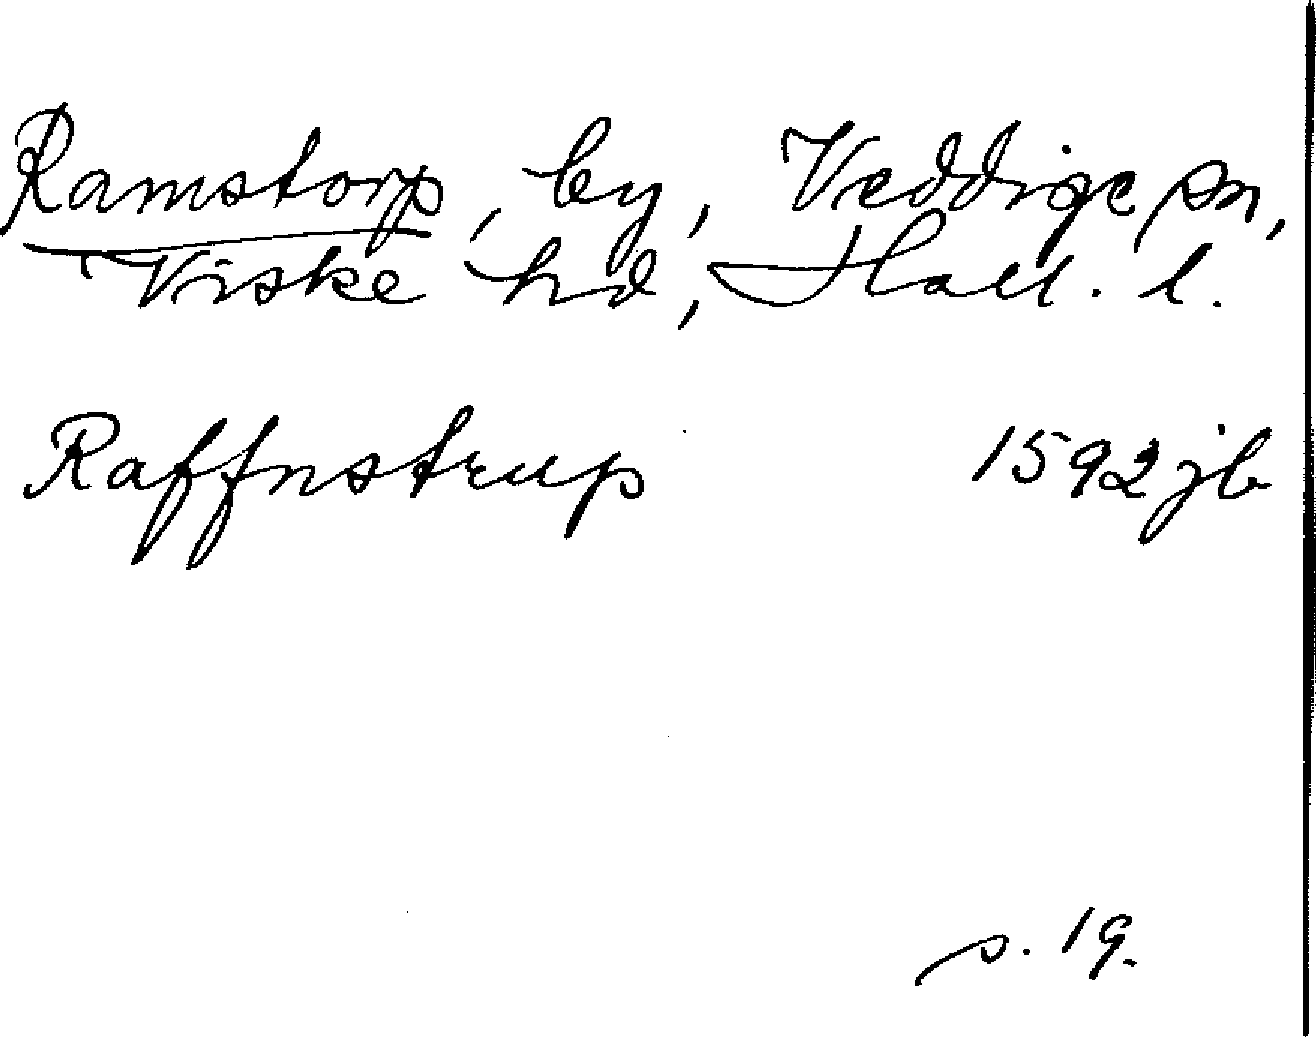 Ramstorp, by, Veddige sn,
Viske hd, Hall. l.
Raffnstrup 1592 jb
s. 19.